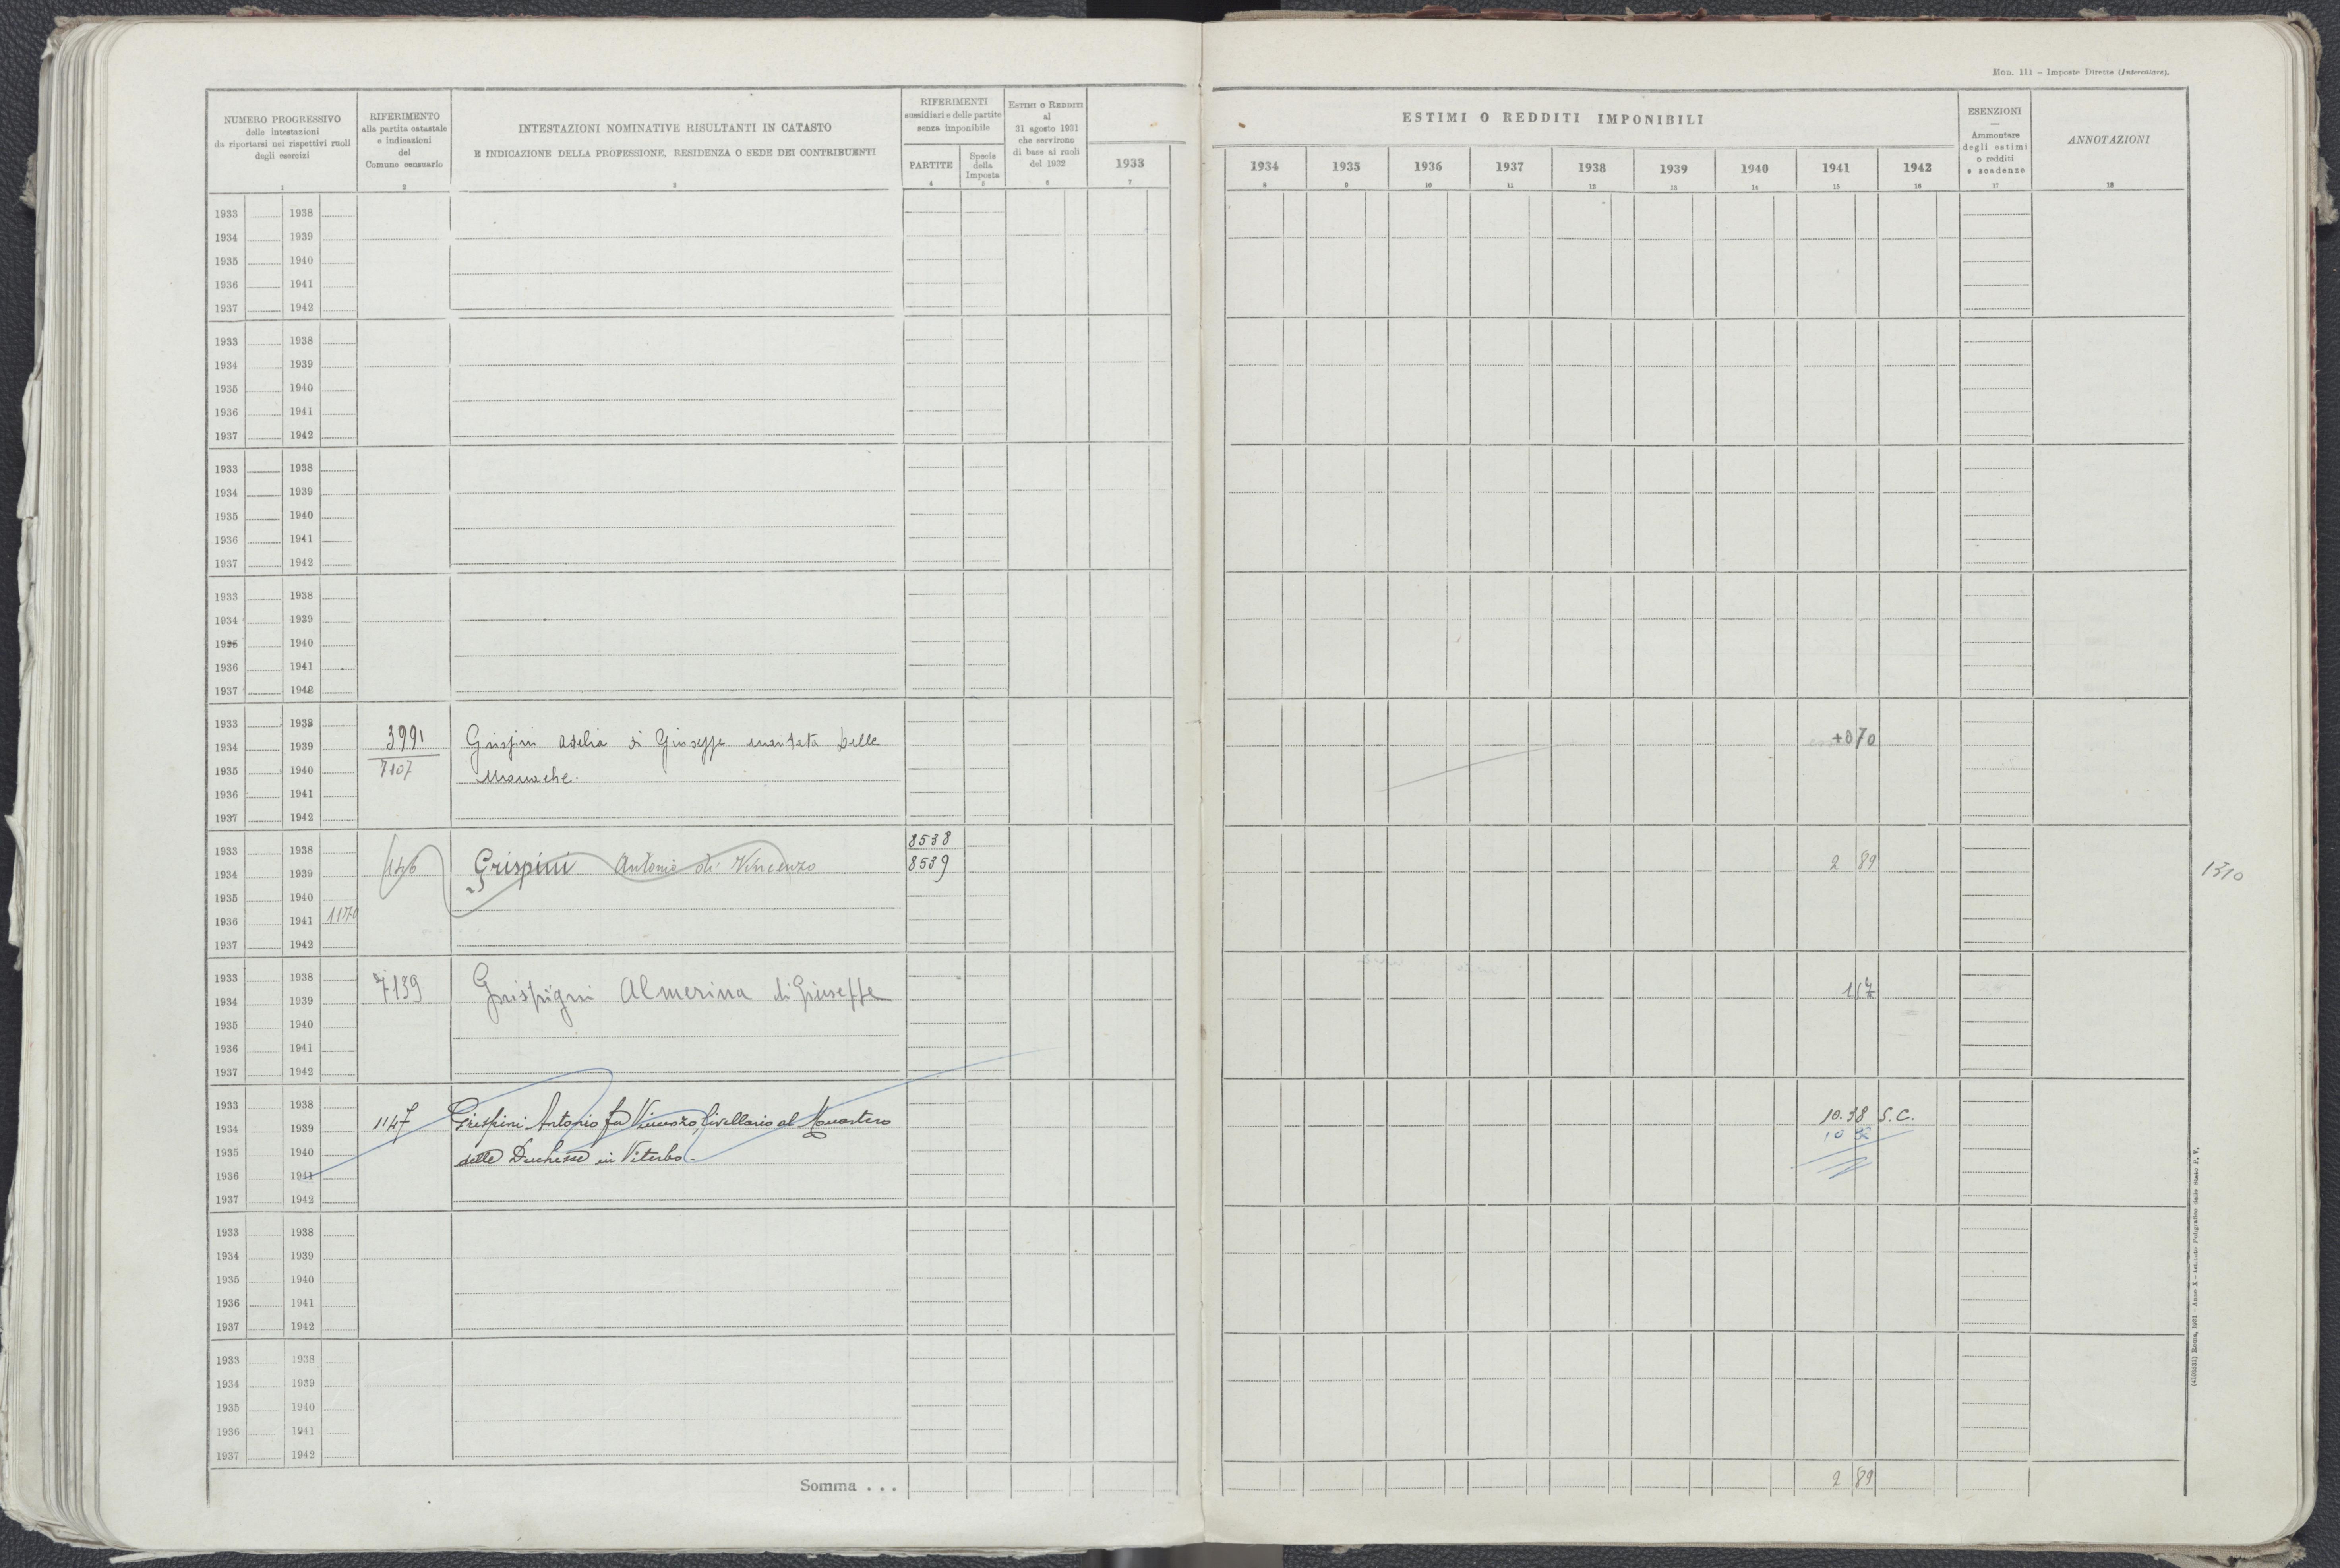 Mod. 111 – Imposte Dirette (Intercalare).
NUMERO PROGRESSIVO
delle intestazioni
da riportarsi nei rispettivi ruoli
degli esercizi
1
RIFERIMENTO
alla partita catastale
e indicazioni
del
Comune censuario
2
INTESTAZIONI NOMINATIVE RISULTANTI IN CATASTO
E INDICAZIONE DELLA PROFESSIONE, RESIDENZA O SEDE DEI CONTRIBUENTI
3
RIFERIMENTI
sussidiari e delle partite
senza imponibile
PARTITE
4
Specie
della
Imposta
5
Estimi o Redditi
al
31 agosto 1931
che servirono
di base ai ruoli
del 1932
6
1933
7
ESTIMI O REDDITI IMPONIBILI
1934 1935 1936 1937 1938 1939 1940 1941 1942
8 9 10 11 12 13 14 15 16
ESENZIONI
—
Ammontare
degli estimi
o redditi
e scadenze
17
ANNOTAZIONI
18
1933 1938
1934 1939
1935 1940
1936 1941
1937 1942
1933 1938
1934 1939
1935 1940
1936 1941
1937 1942
1933 1938
1934 1939
1935 1940
1936 1941
1937 1942
1933 1938
1934 1939
1935 1940
1936 1941
1937 1942
1933 1938
1934 1939 3991 Grispini Adelia di Giuseppe maritata Delle
1935 1940 7107 Monache.
1936 1941
1937 1942
1933 1938 8538
1934 1939 Grispini Antonio di Vincenzo 8539 2 89 1310
1935 1940
1936 1941 1170
1937 1942
1933 1938
1934 1939 7139 Grispigni Almerina di Giuseppe
1935 1940
1936 1941
1937 1942
1933 1938
1934 1939 1147 Grispini Antonio fu Vincenzo, livellario al Monastero 10.38 S.C.
1935 1940 delle Duchesse in Viterbo.
1936 1941
1937 1942
1933 1938
1934 1939
1935 1940
1936 1941
1937 1942
1933 1938
1934 1939
1935 1940
1936 1941
1937 1942
Somma . . . 2 89